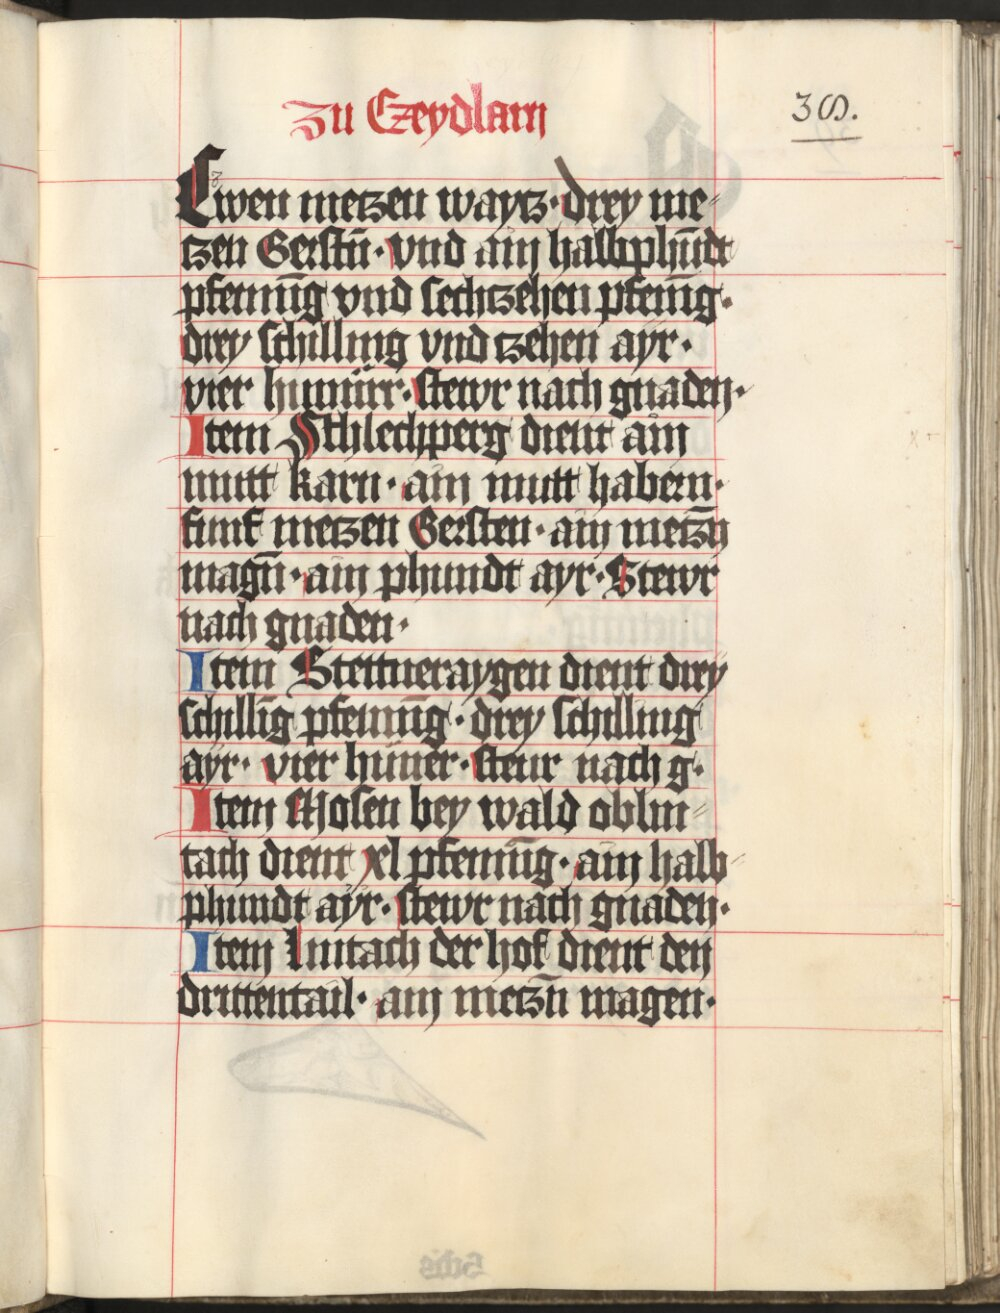 zu Czeydlarn
38.
Czwen metzen waytz · drey me=
tzen Gerstn̄ · vnd ain halbphūdt
pfenning vnd sechtzehen pfenīg ·
drey schilling vnd tzehen ayr ·
vier hunnr · stewr nach gnaden ·
Item Schlechperg dient ain
mutt karn · ain mutt habern ·
funf metzen Gersten · ain metzn̄
magn̄ · ain phundt ayr · Stewr
nach gnaden ·
Item Stettneraygen dient drey
schillīg pfennīg · drey schilling
ayr · vier hüner · steur nach g ·
Item Mosen bey wald oblin=
tach dient xl pfennīg · ain halb=
phundt ayr · stewr nach gnaden ·
Item lintach der hof dient den
drittentail · ain metzn̄ magen ·